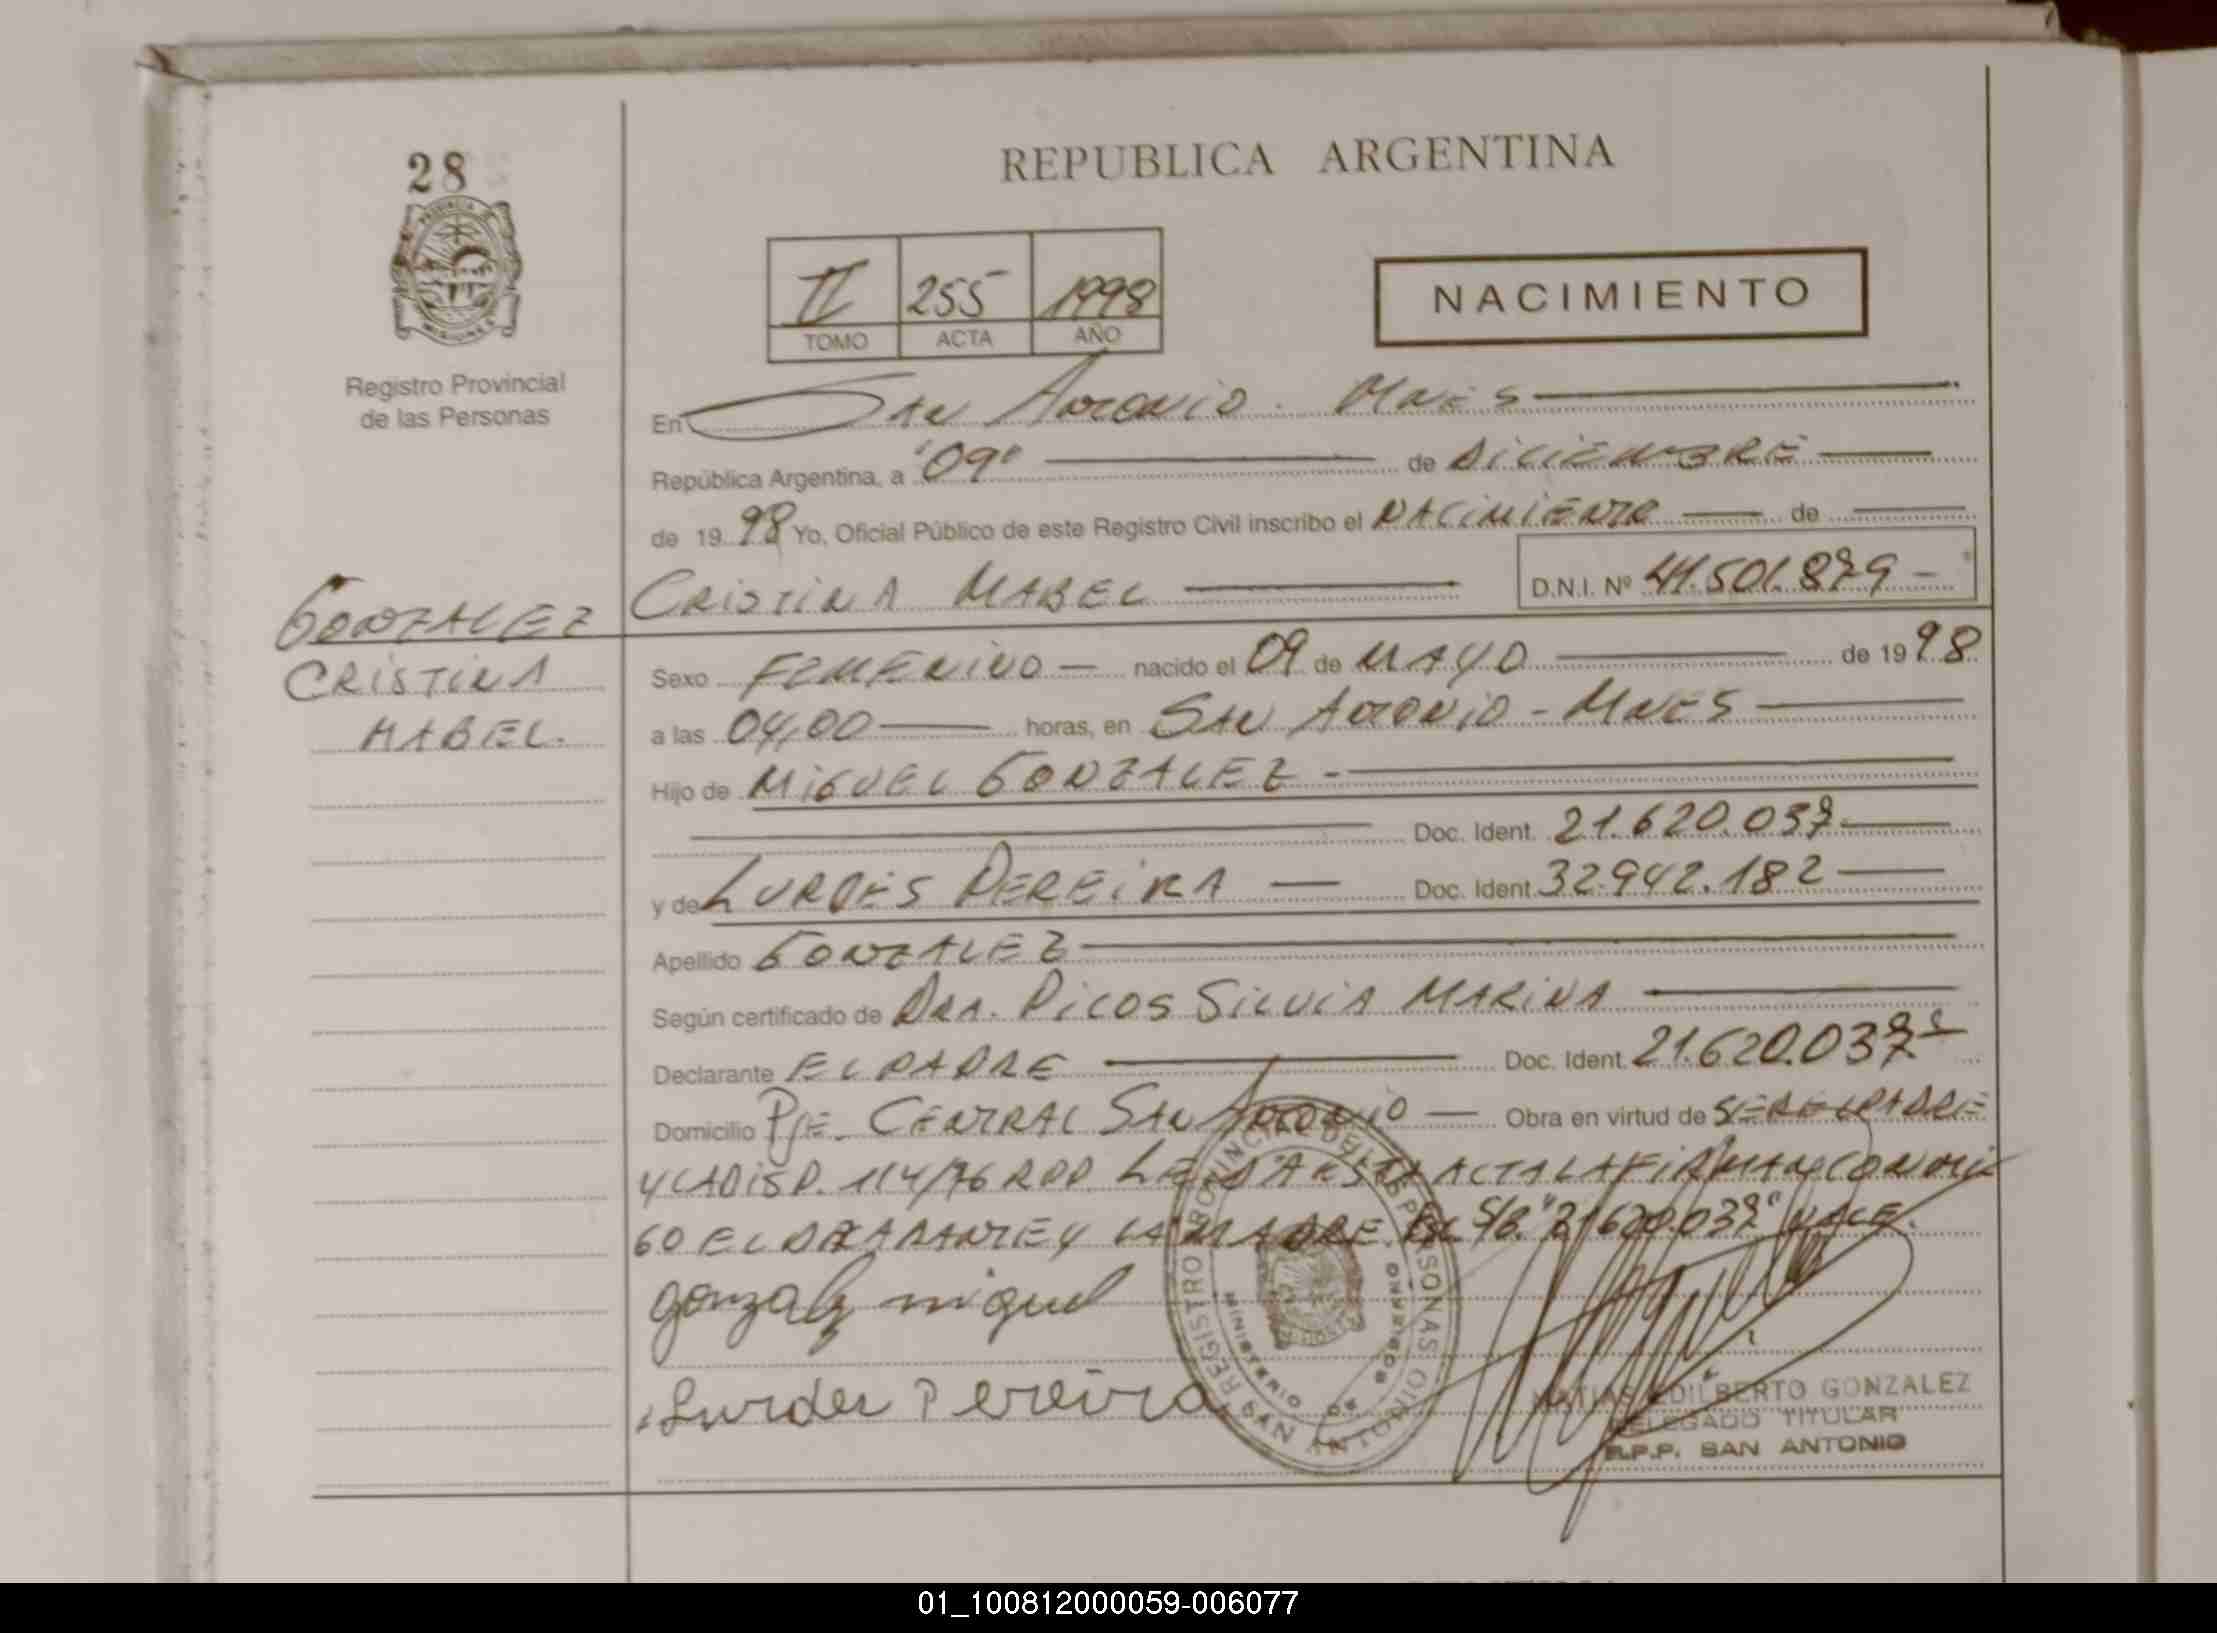 28
PROVINCIA DE
MISIONES
Registro Provincial
de las Personas
GONZALEZ
CRISTINA
MABEL.
REPUBLICA ARGENTINA
II 255 1998
TOMO ACTA AÑO
NACIMIENTO
En San Antonio. Mnes
República Argentina, a "09" de DICIEMBRE
de 19 98 Yo, Oficial Público de este Registro Civil inscribo el NACIMIENTO de
CRISTINA MABEL D.N.I. Nº 41.501.879
Sexo FEMENINO nacido el 09 de MAYO de 19 98
a las 04,00 horas, en SAN ANTONIO - MNES
Hijo de MIGUEL GONZALEZ
Doc. Ident. 21.620.037
y de LURDES PEREIRA Doc. Ident. 32.942.182
Apellido GONZALEZ
Según certificado de DRA. PICOS SILVIA MARINA
Declarante EL PADRE Doc. Ident. 21.620.037
Domicilio PJE. CENTRAL SAN ANTONIO Obra en virtud de SER EL PADRE
Y LA DISP. 114/76 RPP. LEIDA ESTA ACTA LA FIRMAN CONMI
GO EL DECLARANTE Y LA MADRE. S/B. "21.620.037" VALE.
gonzalez miguel
Lurdes Pereira
REGISTRO PROVINCIAL DE LAS PERSONAS
MINISTERIO DE GOBIERNO
SAN ANTONIO
MATIAS EDILBERTO GONZALEZ
DELEGADO TITULAR
R.P.P. SAN ANTONIO
01_100812000059-006077